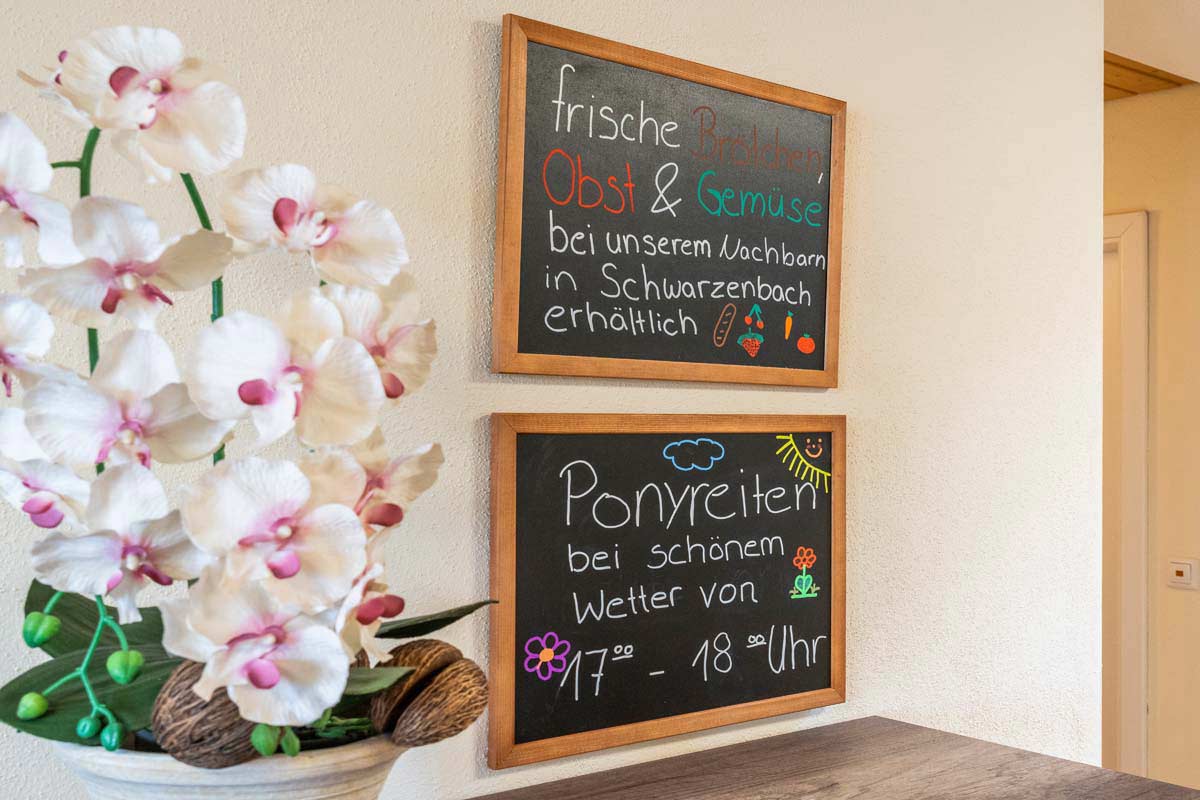 frische Brötchen,
Obst & Gemüse
bei unserem Nachbarn
in Schwarzenbach
erhältlich
Ponyreiten
bei schönem
Wetter von
17⁰⁰ - 18⁰⁰ Uhr